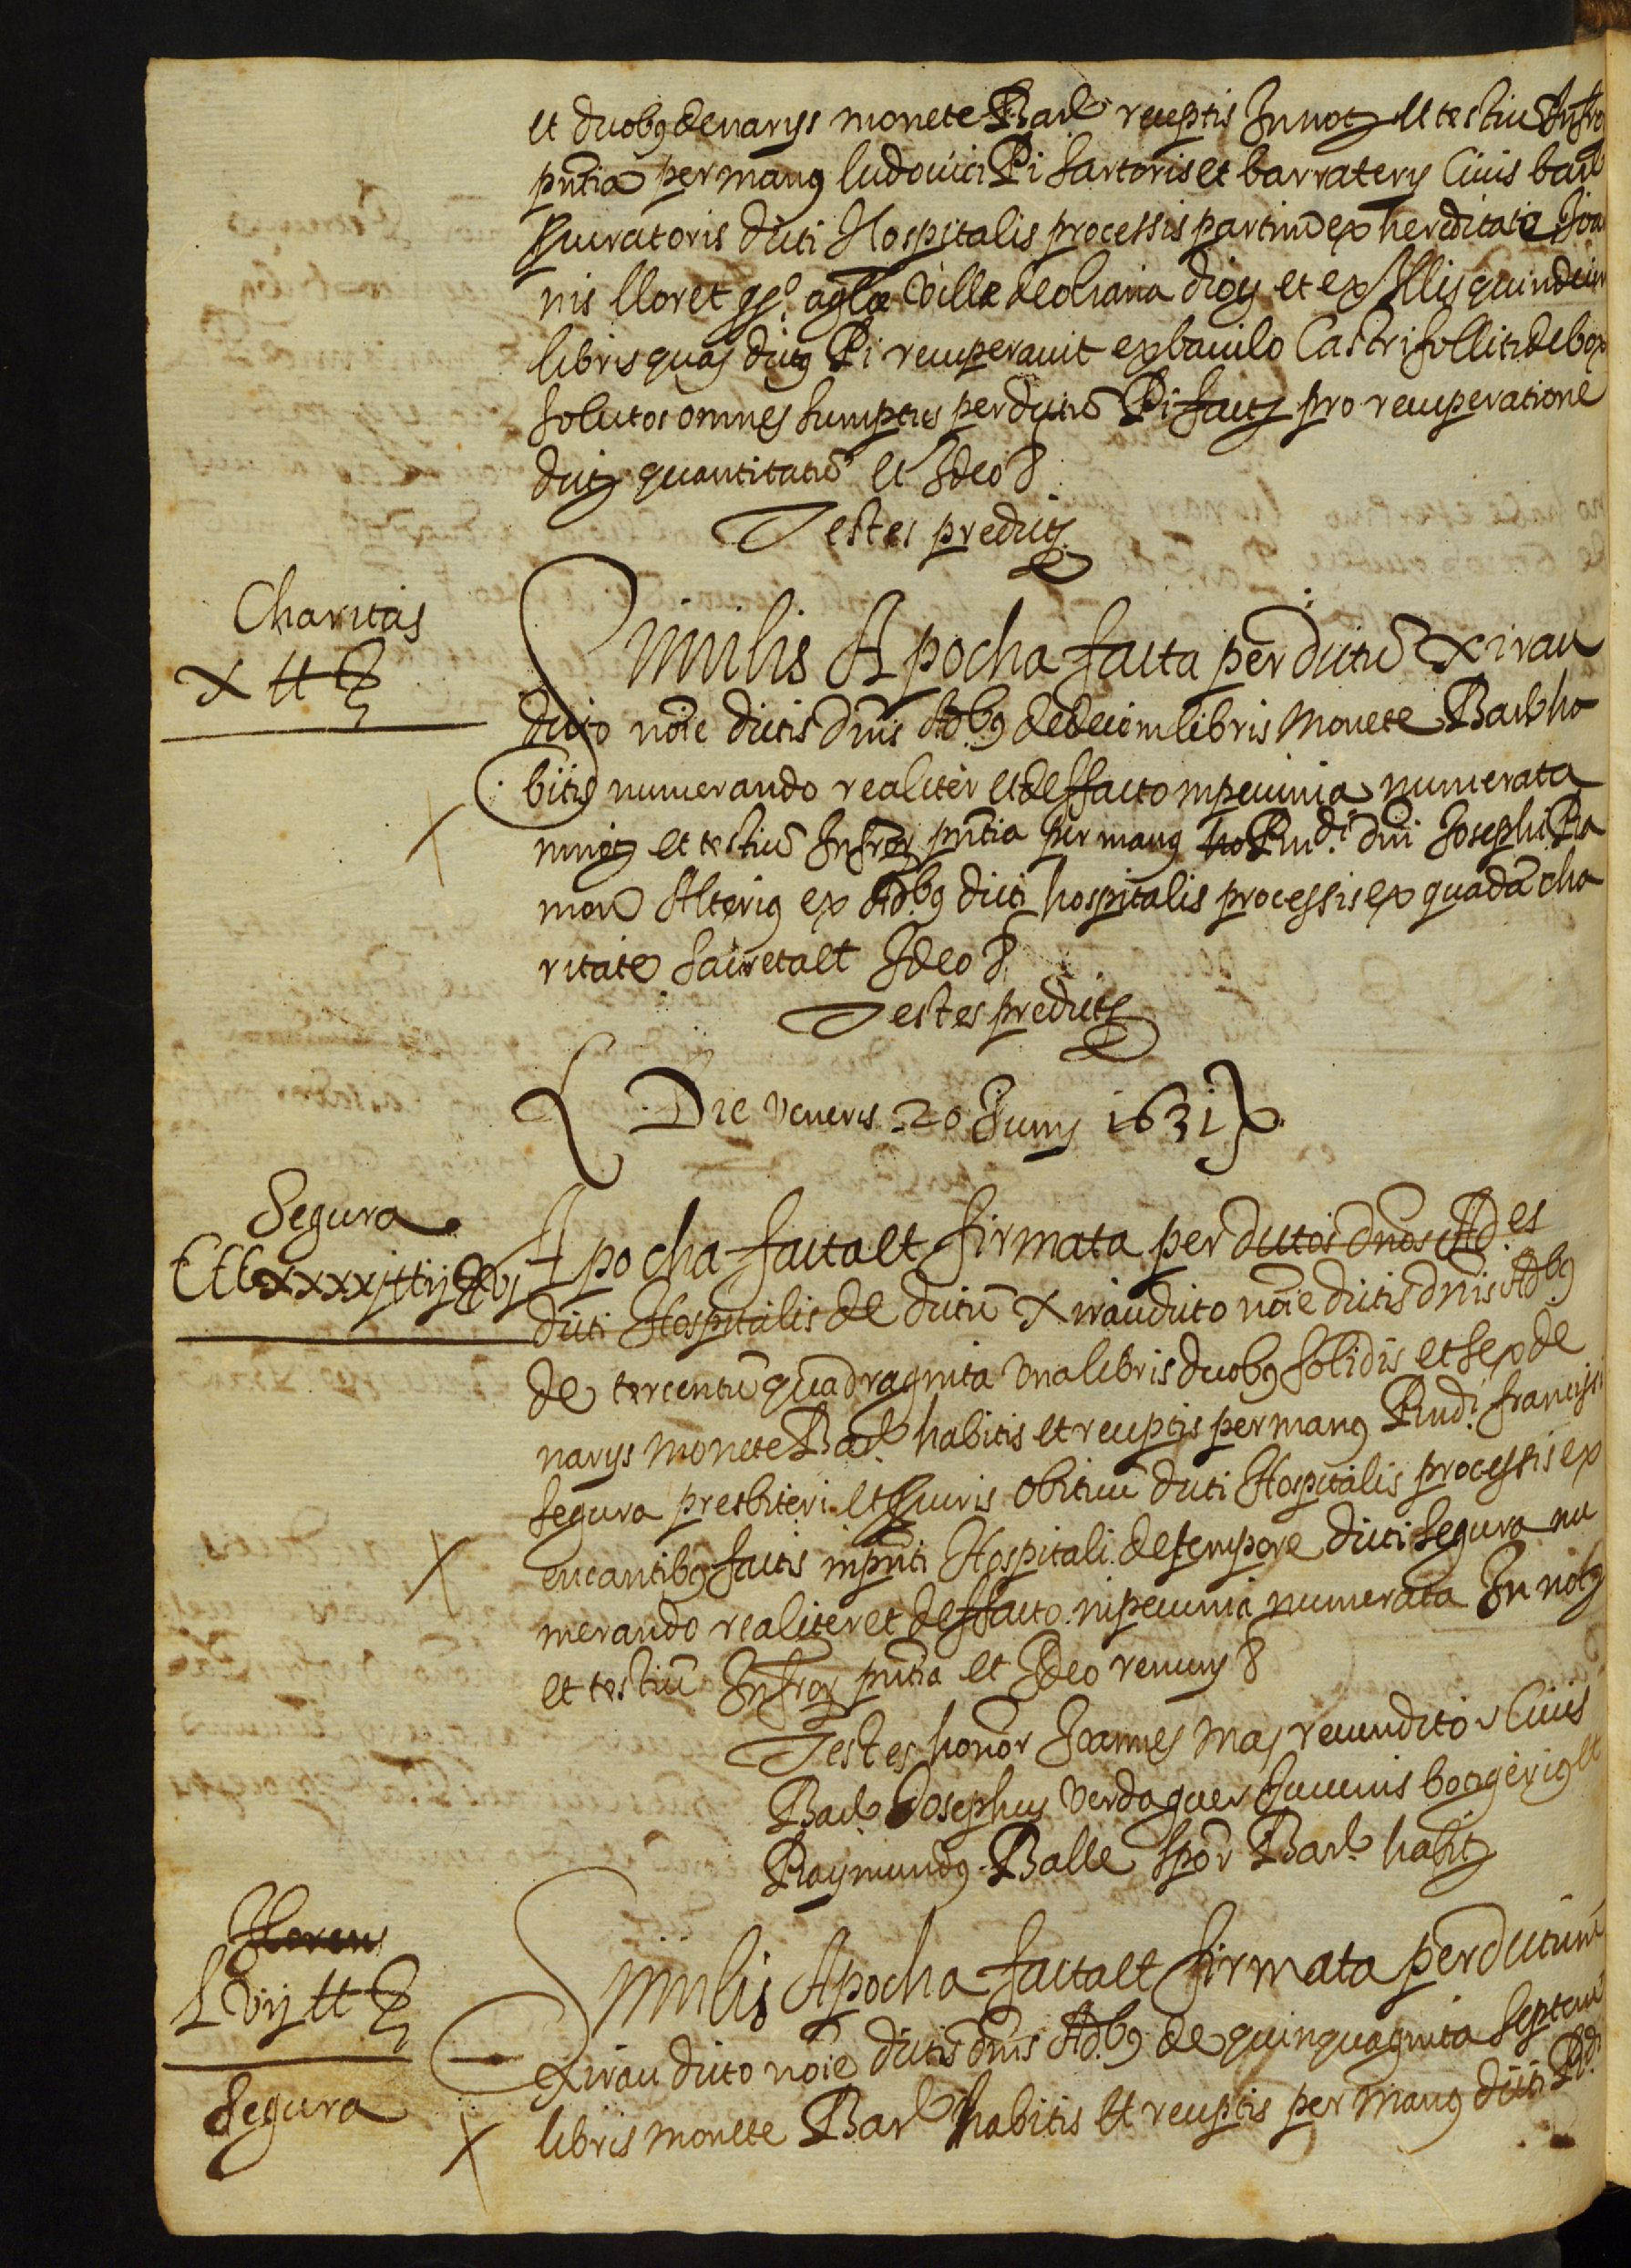 et duobꝰ denarijs monete Barᵉ receptis In notꝫ et testiũ Infro
pñtia per manꝰ ludovici Pi sartoris et barraterij Civis barᵉ
Curatoris dicti Hospitalis processis partim ex hereditate Joa
nis lloret qº. agᵉ Ville de oliana dioꝫ et ex Illis quindecim
libris quas dictꝰ Pi recuperavit ex baiulo Castrifolliti de box
solutos omnes sumptus per dictũ Pi factꝫ pro recuperatione
dictꝫ quantitatũ et Ideo &
Testes predictꝫ
Charitas
x tt ß
Similis Apocha facta per dictũ Xirau
dicto nõie dictis dñis Ad.bꝰ de decem libris Monete Barᵉ ha
bitis numerando realiter et de facto in pecunia numerata
in notꝫ et testiũ Infrorꝫ pñtia per manꝰ Rndi. dñi Josephi Ra
mon Alteriꝰ ex Ad.bꝰ dicti hospitalis processis ex quadã cha
ritate secreta et Ideo &
Testes predictꝫ
Die veneris 20 Junij 1631
Segura
CCCxxxxj tt ij ß vj
Apocha facta et firmata per dictos dños Ad.es
dicti Hospitalis de dictũ Xirau dicto nõie dictis dñis Ad.bꝰ
de tercentũ quadraginta una libris duobꝰ solidis et sex de
narijs monete Barᵉ. habitis et receptis per manꝰ Rndi. francisci
segura presbiteri et Curis obituũ dicti Hospitalis processis ex
encantibꝰ factis in pñti Hospitali de tempore dicti segura nu
merando realiter et de facto in pecunia numerata In notꝫ
et testiũ Infrorꝫ pñtia et Ideo renunꝫ &
Testes honor Joannes Mas revenditor Civis
Barᵉ Josephus Verdaguer Juvenis botigeriꝰ et
Raymundꝰ Balle spor Barᵉ. habitꝫ
Lvij tt ß
Segura
Similis Apocha facta et firmata per dictum
Xirau dicto nõie dictis dñis Ad.bꝰ de quinquaginta septem
libris monete Barᵉ habitis et receptis per manꝰ dicti Rdi.